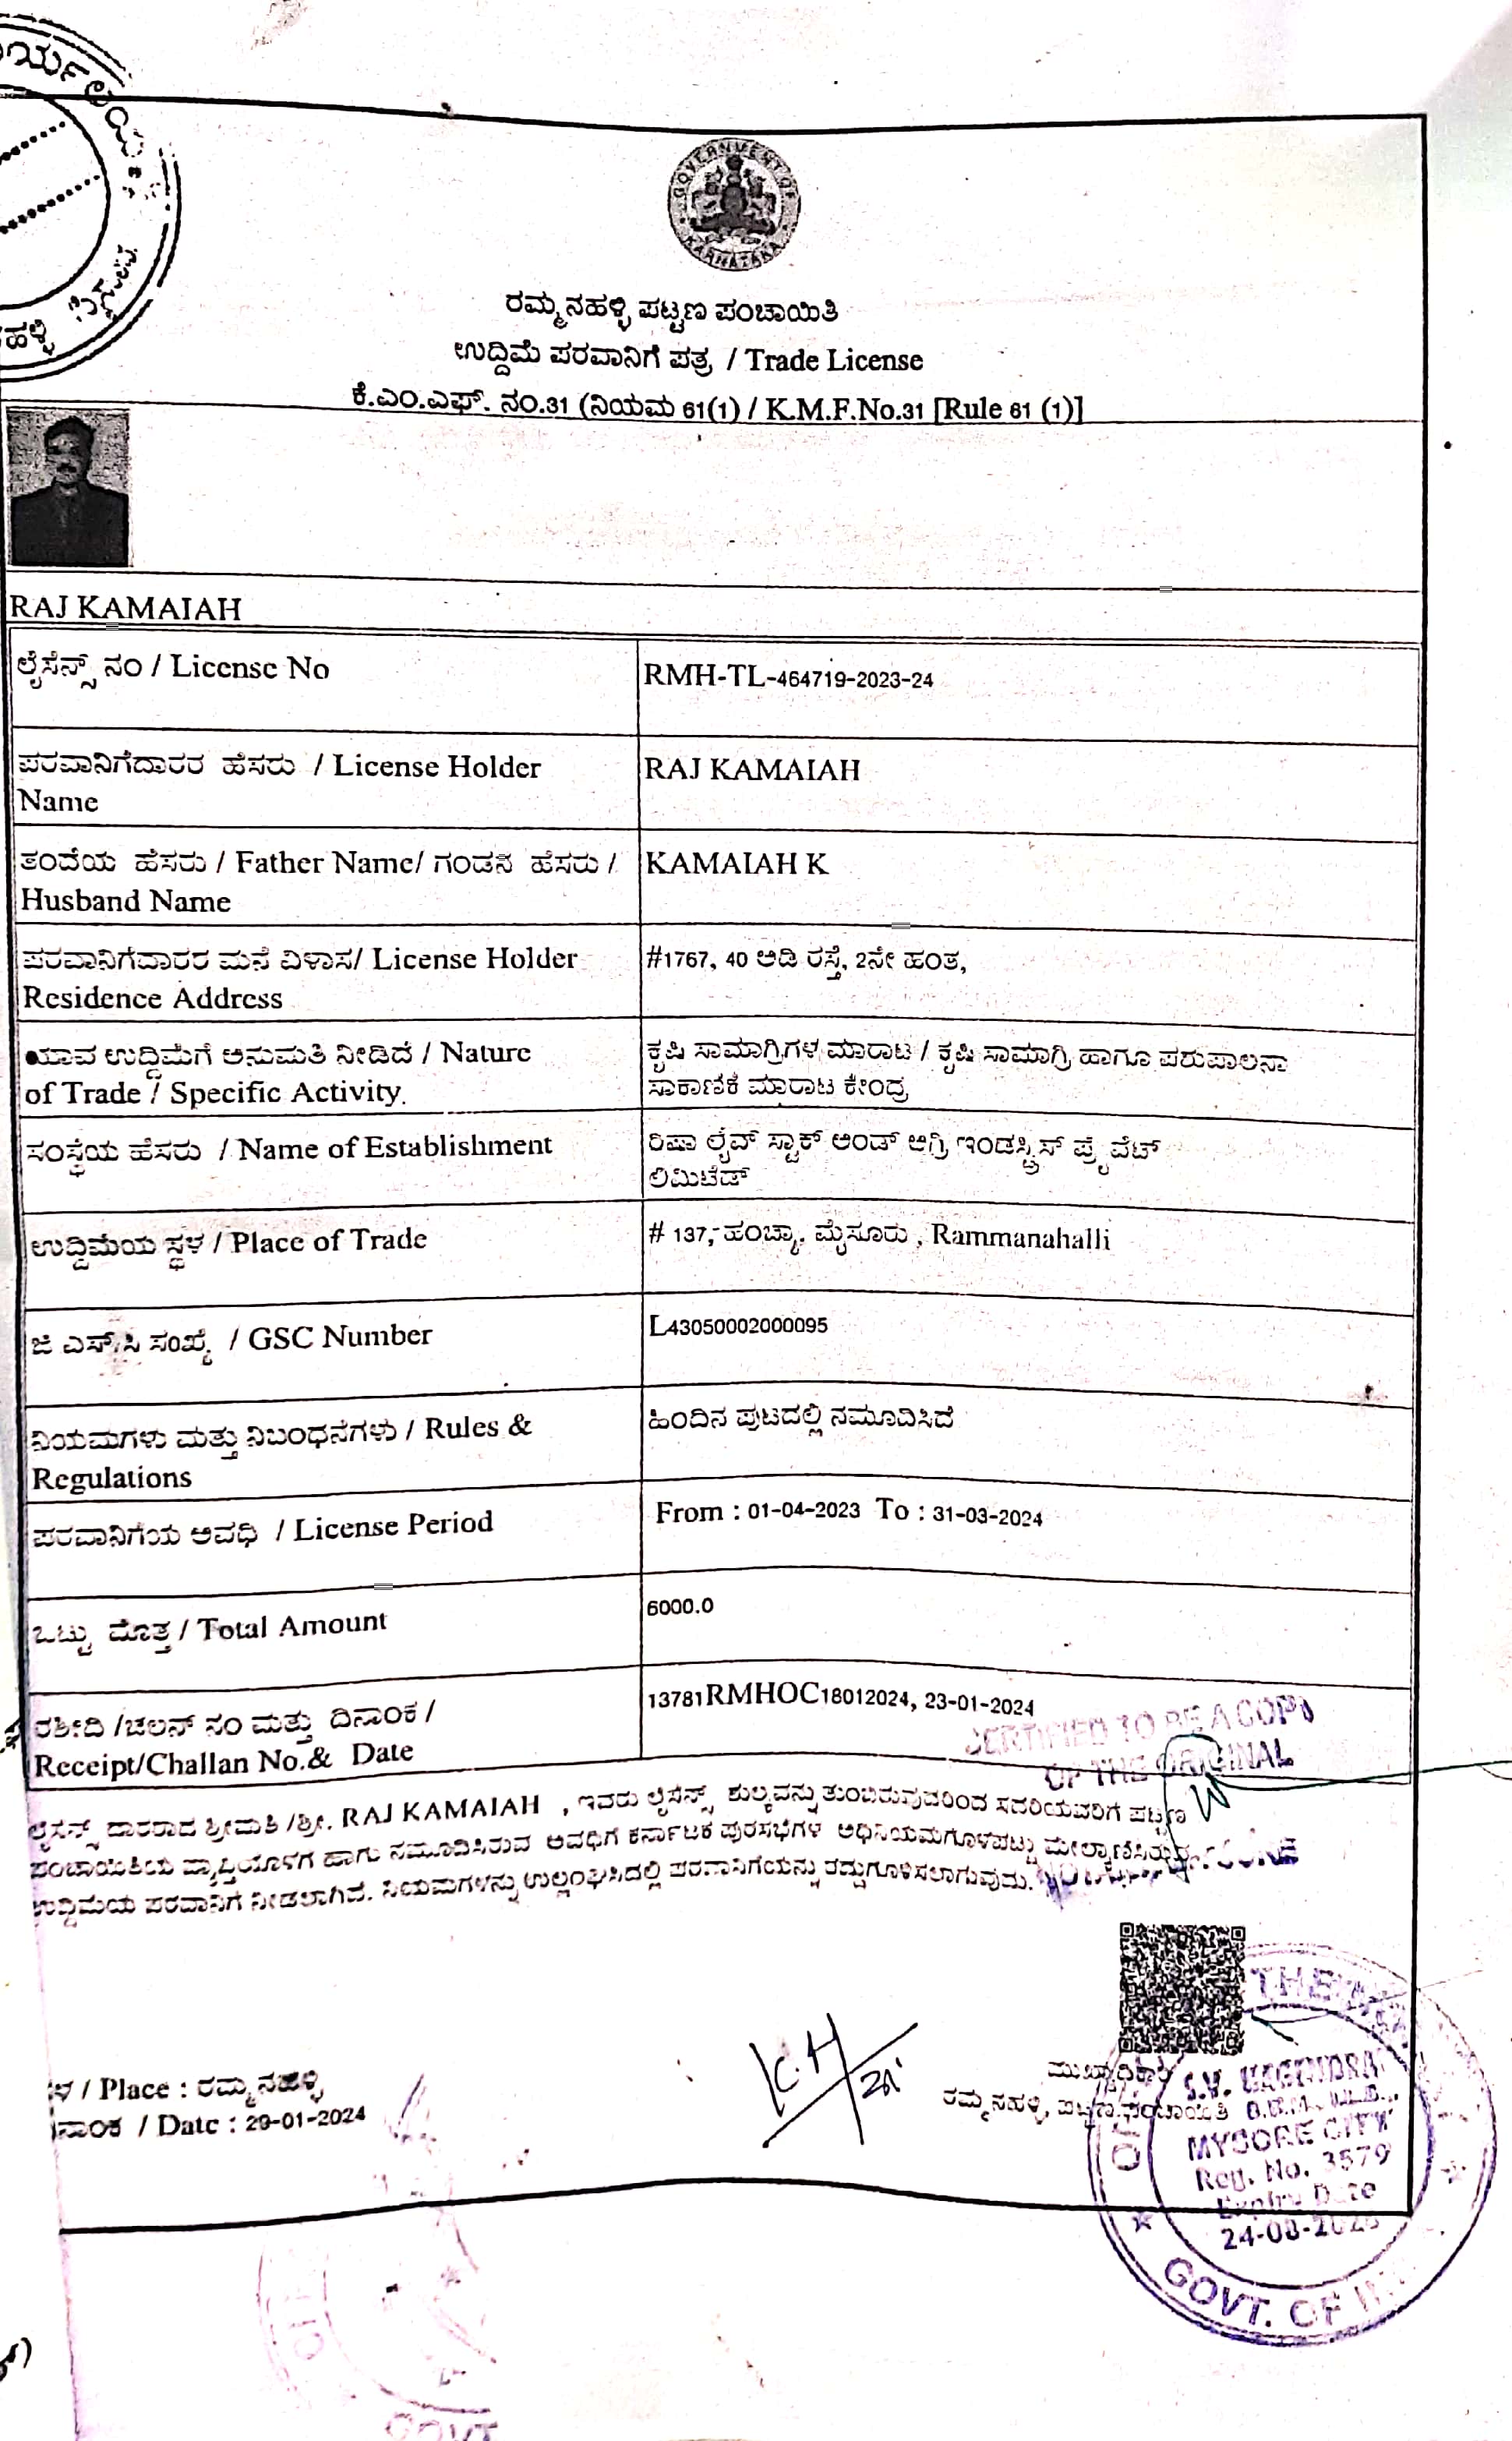 ರ್ಯಾಲಯ
ಹಳ್ಳಿ
GOVERNMENT OF
KARNATAKA
ರಮ್ಮನಹಳ್ಳಿ ಪಟ್ಟಣ ಪಂಚಾಯಿತಿ
ಉದ್ದಿಮೆ ಪರವಾನಿಗೆ ಪತ್ರ / Trade License
ಕೆ.ಎಂ.ಎಫ್. ನಂ.31 (ನಿಯಮ 61(1) / K.M.F.No.31 [Rule 61 (1)]
RAJ KAMAIAH
ಲೈಸೆನ್ಸ್ ನಂ / License No
RMH-TL-464719-2023-24
ಪರವಾನಿಗೆದಾರರ ಹೆಸರು / License Holder
Name
RAJ KAMAIAH
ತಂದೆಯ ಹೆಸರು / Father Name/ ಗಂಡನ ಹೆಸರು /
Husband Name
KAMAIAH K
ಪರವಾನಿಗೆದಾರರ ಮನೆ ವಿಳಾಸ/ License Holder
Residence Address
#1767, 40 ಅಡಿ ರಸ್ತೆ, 2ನೇ ಹಂತ,
ಯಾವ ಉದ್ದಿಮೆಗೆ ಅನುಮತಿ ನೀಡಿದೆ / Nature
of Trade / Specific Activity.
ಕೃಷಿ ಸಾಮಾಗ್ರಿಗಳ ಮಾರಾಟ / ಕೃಷಿ ಸಾಮಾಗ್ರಿ ಹಾಗೂ ಪಶುಪಾಲನಾ
ಸಾಕಾಣಿಕೆ ಮಾರಾಟ ಕೇಂದ್ರ
ಸಂಸ್ಥೆಯ ಹೆಸರು / Name of Establishment
ರಿಷಾ ಲೈವ್ ಸ್ಟಾಕ್ ಅಂಡ್ ಆಗ್ರಿ ಇಂಡಸ್ಟ್ರಿಸ್ ಪ್ರೈವೆಟ್
ಲಿಮಿಟೆಡ್
ಉದ್ದಿಮೆಯ ಸ್ಥಳ / Place of Trade
# 137, ಹಂಚ್ಯಾ, ಮೈಸೂರು , Rammanahalli
ಜಿ ಎಸ್.ಸಿ ಸಂಖ್ಯೆ / GSC Number
L43050002000095
ನಿಯಮಗಳು ಮತ್ತು ನಿಬಂಧನೆಗಳು / Rules &
Regulations
ಹಿಂದಿನ ಪುಟದಲ್ಲಿ ನಮೂದಿಸಿದೆ
ಪರವಾನಿಗೆಯ ಅವಧಿ / License Period
From : 01-04-2023 To : 31-03-2024
ಒಟ್ಟು ಮೊತ್ತ / Total Amount
6000.0
ರಶೀದಿ /ಚಲನ್ ನಂ ಮತ್ತು ದಿನಾಂಕ /
Receipt/Challan No.& Date
13781RMHOC18012024, 23-01-2024
CERTIFIED TO BE A COPY
OF THE ORIGINAL
ಲೈಸೆನ್ಸ್ ದಾರರಾದ ಶ್ರೀಮತಿ /ಶ್ರೀ. RAJ KAMAIAH , ಇವರು ಲೈಸೆನ್ಸ್ ಶುಲ್ಕವನ್ನು ತುಂಬಿರುವುದರಿಂದ ಸದರಿಯವರಿಗೆ ಪಟ್ಟಣ
ಪಂಚಾಯಿತಿಯ ವ್ಯಾಪ್ತಿಯೊಳಗೆ ಹಾಗು ನಮೂದಿಸಿರುವ ಅವಧಿಗೆ ಕರ್ನಾಟಕ ಪುರಸಭೆಗಳ ಅಧಿನಿಯಮಗೊಳಪಟ್ಟು ಮೇಲ್ಕಾಣಿಸಿರುವ
ಉದ್ದಿಮೆಯ ಪರವಾನಿಗೆ ನೀಡಲಾಗಿದೆ. ನಿಯಮಗಳನ್ನು ಉಲ್ಲಂಘಿಸಿದಲ್ಲಿ ಪರವಾನಿಗೆಯನ್ನು ರದ್ದುಗೊಳಿಸಲಾಗುವುದು.
ಳ / Place : ರಮ್ಮನಹಳ್ಳಿ
ನಾಂಕ / Date : 29-01-2024
ಮುಖ್ಯಾಧಿಕಾರಿ
ರಮ್ಮನಹಳ್ಳಿ, ಪಟ್ಟಣ ಪಂಚಾಯಿತಿ
THE
MYSORE CITY
Reg. No. 3579
Expiry Date
GOVT. OF
GOVT